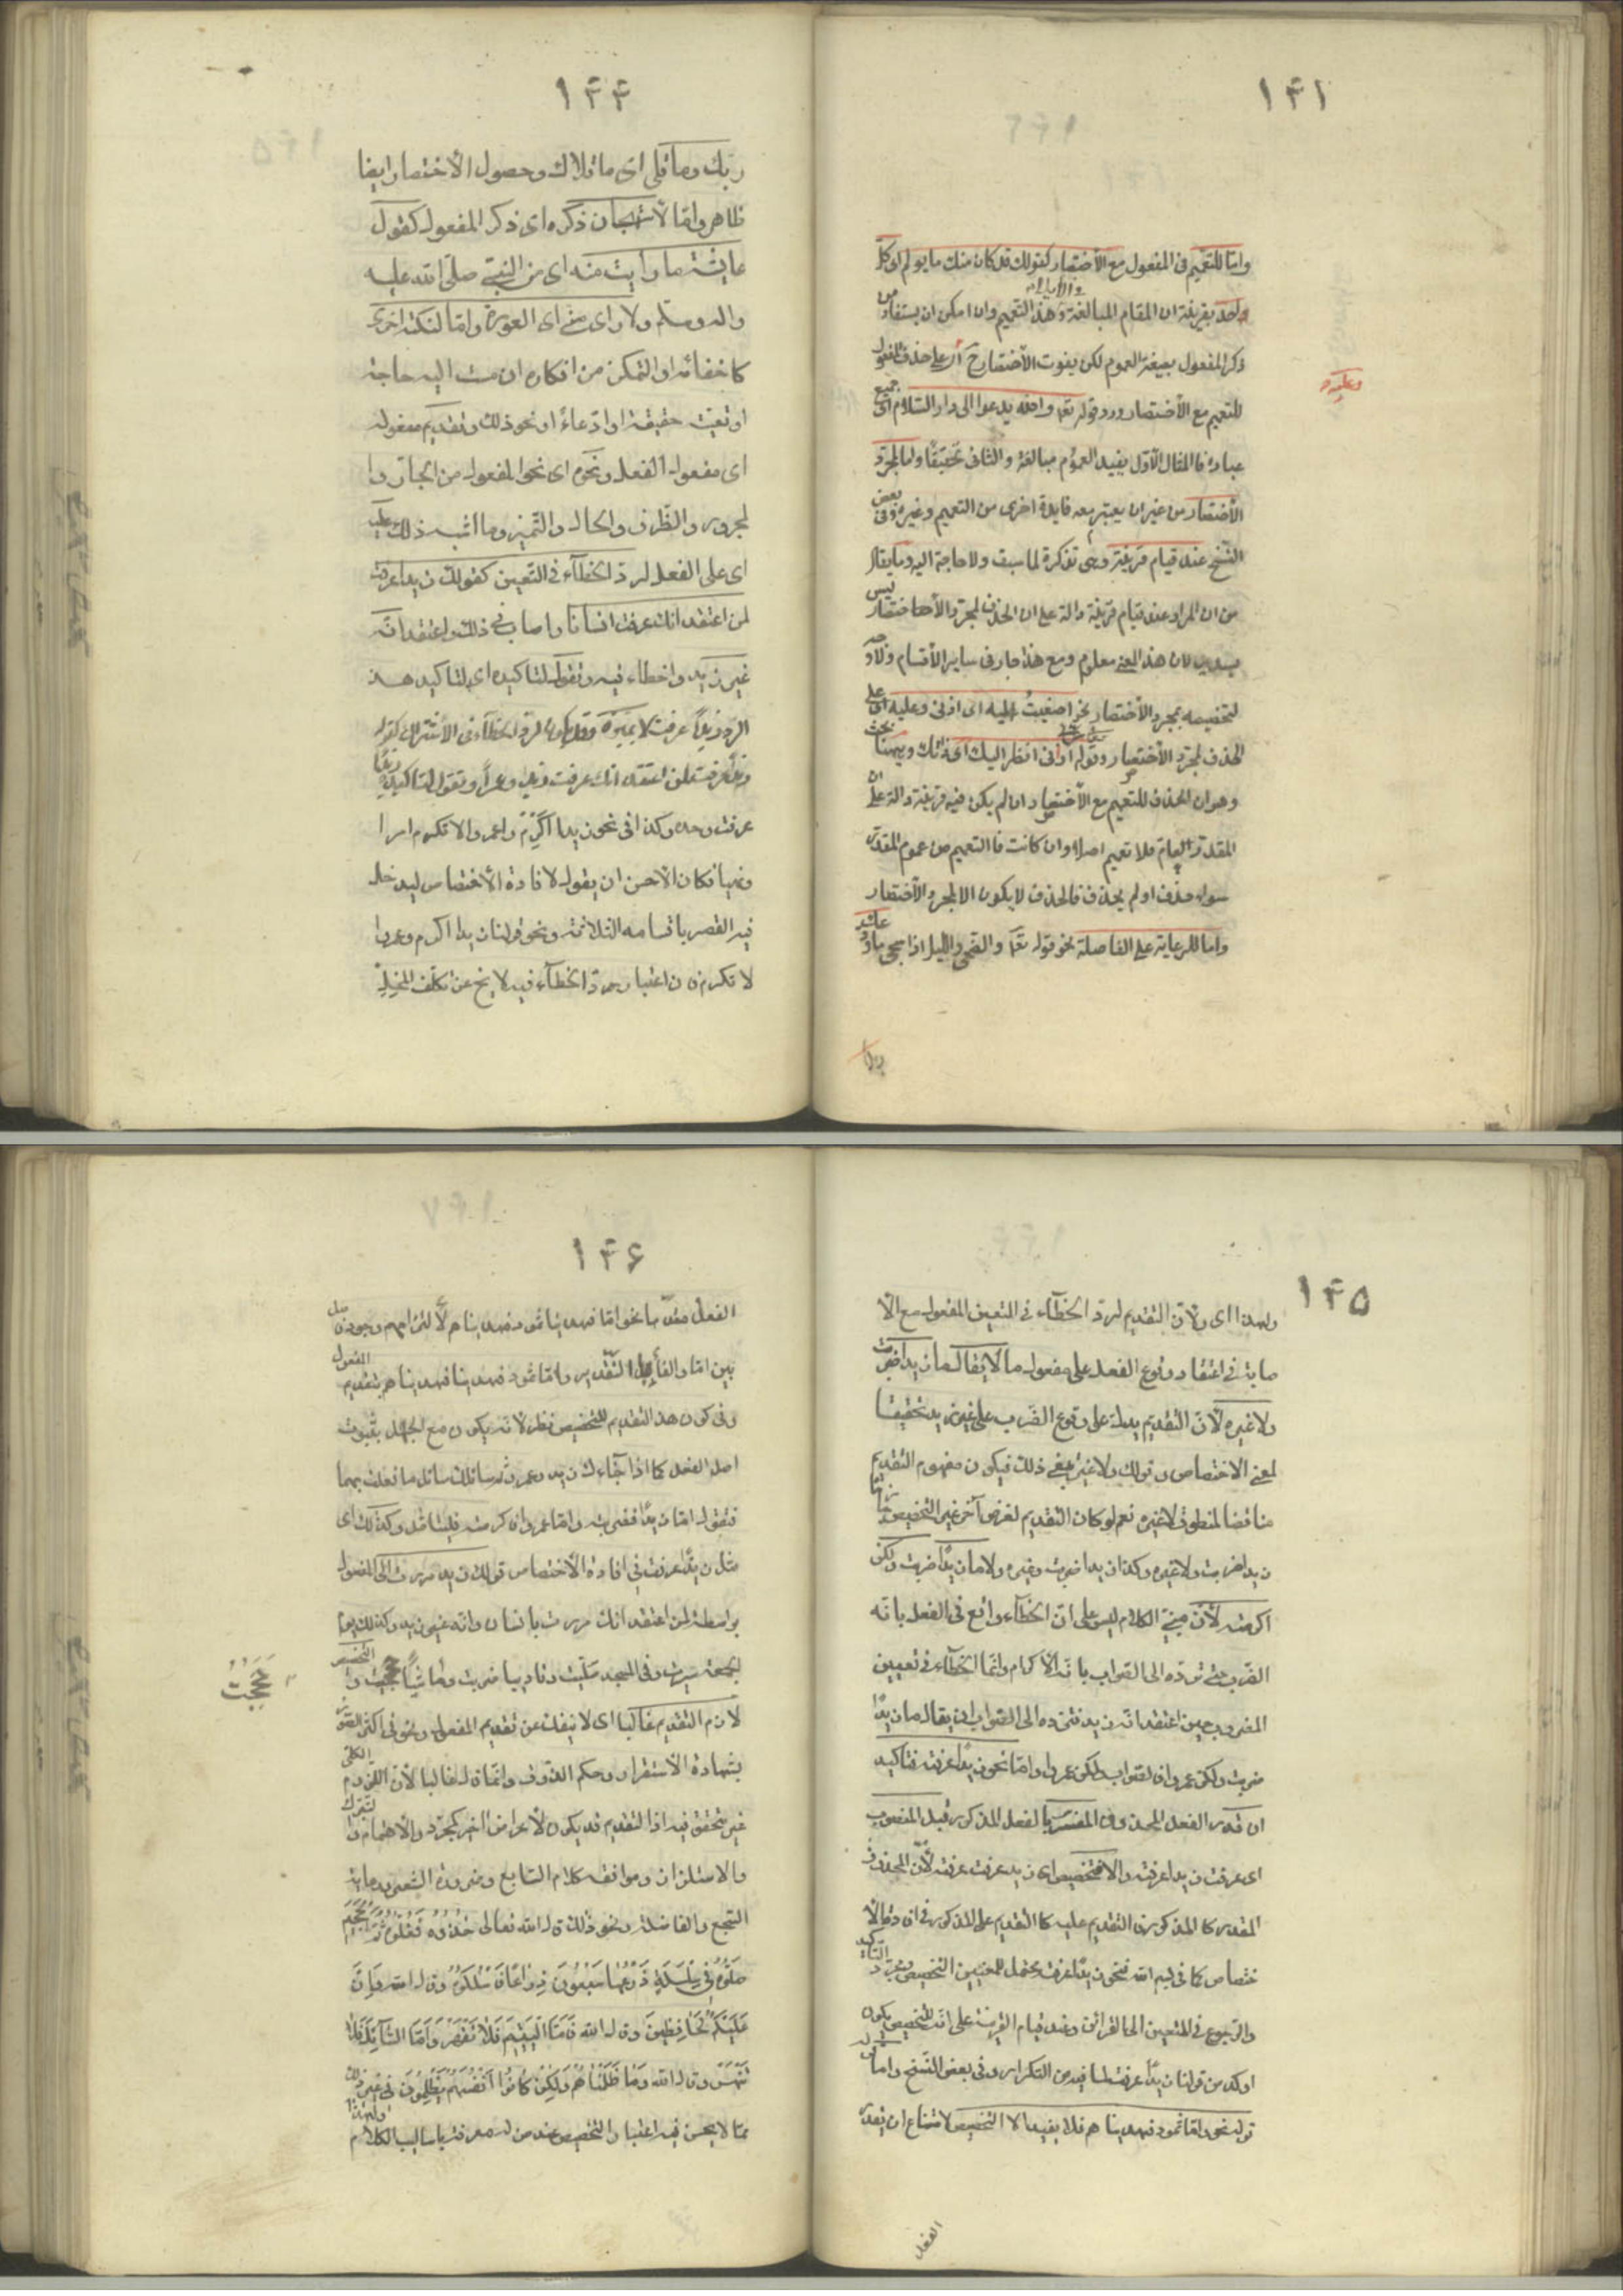 ١٤١
واما للتعميم فى المفعول مع الأختصار كقولك قد كان منك ما يولم اى كل
واحد بقرينة ان المقام المبالغة وهذا التعميم وان امكن ان يستفاد من
ذكر المفعول بصيغة العموم لكن يفوت الأختصار ح اى على حذف المفعول
وعليه
للتعميم مع الأختصار ورد قوله تعا والله يدعوا الى دار السّلام اى جميع
عباده فالمثال الأوّل يفيد العموم مبالغة والثانى تحقيقًا واما لمجرّد
الأختصار من غير ان يعتبر معه فايدة اخرى من التعميم وغيره وفى بعض
النّسخ عند قيام قرينة وهى تذكرة لما سبق ولا حاجة اليه وما يقال
من ان المراد عند قيام قرينة دالة على ان الحذف لمجرد الأختصار ليس
بسديد لان هذا المعنى معلوم ومع هذا جار فى ساير الأقسام ولا وجه
لتخصيصه بمجرد الأختصار نحو اصغيتُ اليه اى اذنى وعليه اى على
الحذف لمجرّد الأختصار وقوله ارنى انظر اليك اى ذاتك وههنا بحث
وهو ان الحذف للتعميم مع الأختصار ان لم يكن فيه قرينة دالة على انّ
المقدّر عام فلا تعميم اصلا وان كانت فالتعميم من عموم المقدّر
سواء حذف او لم يحذف فالحذف لا يكون الا لمجرد الأختصار
واما للرعاية على الفاصلة نحو قوله تعا والضحى والليل اذا سجى ما ودعك
ربك
١٤٤
ربّك وما قلى اى ما قلاك وحصول الأختصار ايضا
ظاهر وامّا لأستهجان ذكره اى ذكر المفعول كقول
عايشة ما رايت منه اى من النبىّ صلّى الله عليه
واله وسلّم ولا راى منّى اى العورة وامّا لنكتة اخرى
كاخفائه او التمكن من انكاره ان مست اليه حاجة
او تعيّنه حقيقة او ادّعاءً او نحو ذلك وتقديم مفعوله
اى مفعول الفعل ونحوه اى نحو المفعول من الجارّ وا
لمجرور والظّرف والحال والتّميز وما اشبه ذلك عليه
اى على الفعل لردّ الخطآء فى التّعيين كقولك زيدا عرفت
لمن اعتقد انّك عرفت انسانا واصاب فى ذلك واعتقد انّه
غير زيد واخطاء فيه وتقول لتاكيده اى لتاكيد هذ
الردّ زيداً عرفت لا غيره وقد يكون لردّ الخطآء فى الأشتراك كقولك
زيداً عرفت لمن اعتقد انّك عرفت زيدا وعمراً وتقول لتاكيده زيدًا
عرفت وحده وكذا فى نحو زيدا اكرم وعمروا لا تكرم امرا
ونهيا فكان الأحسن ان يقول لافادة الأختصاص ليدخل
فيه القصر باقسامه الثلاثة ونحو قولنا زيدا اكرم وعمروا
لا تكرم فان اعتبار ردّ الخطآء فيه لا يخ عن تكلّف
١٤٥
ولهذا اى ولأنّ التقديم لردّ الخطآء فى التعيين المفعول مع الأ
صابة فى اعتقاد وقوع الفعل على مفعول ما لا يقال ما زيدا ضربت
ولا غيره لأنّ التقديم يدلّ على وقوع الضّرب على غير زيد تحقيقا
لمعنى الاختصاص وقولك ولا غيره ينفى ذلك فيكون مفهوم التقديم
مناقضا لمنطوق لا غيره نعم لو كان التقديم لغرض آخر غير التخصيص جاز ما
زيدا ضربت ولا غيره وكذا زيدا ضربت وغيره ولا ما زيدًا ضربت ولكن
اكرمته لأنّ مبنى الكلام ليس على انّ الخطآء واقع فى الفعل بانّه
الضّرب حتى تردّه الى الصّواب بانّه الأكرام وانّما الخطآء فى تعيين
المضروب حين اعتقد انّه زيد فتردّه الى الصّواب ان يقال ما زيدًا
ضربت ولكن عمروا وامّا نحو زيدًا عرفته فتاكيد
ان قدّر الفعل المحذوف المفسّر بالفعل المذكور قبل المنصوب
اى عرفت زيدا عرفته والا فتخصيص اى زيدا عرفت عرفته لأنّ المحذوف
المقدر كالمذكور فالتقديم عليه كالتقديم على المذكور فى افادة الأ
ختصاص كما فى بسم الله فنحو زيدًا عرفته يحتمل للمعنيين التخصيص والتّاكيد
والرّجوع فى التعيين الى القرائن وعند قيام القرينة على انّه للتخصيص يكون
اوكد من قولنا زيدًا عرفت لما فيه من التكرار وفى بعض النّسخ وامّا
قوله نحو وامّا ثمود فهديناهم فلا يفيد الا التخصيص لامتناع ان يقدّر
الفعل
١٤٦
الفعل مقدّما نحو امّا فهدينا ثمود فهديناهم لألتزامهم وجود فاصل
بين امّا والفآء بل التّقدير وامّا ثمود فهدينا فهديناهم بتقديم المفعول
وفى كون هذا التقديم للتخصيص نظر لأنّه يكون مع الجهل بثبوت
اصل الفعل كما اذا جآءك زيد وعمرو ثم سالك سائل ما فعلت بهما
فتقول امّا زيدًا فضربته وامّا عمروا فاكرمته فليتامّل وكذلك اى
مثل زيدًا عرفت فى افادة الأختصاص قولك بزيد مررت الى المفعول
بواسطة لمن اعتقد انّك مررت بانسان وانّه غير زيد وكذلك يوم
الجمعة سرت وفى المسجد صلّيت وتاديبا ضربت وماشيًا حججت والتّخصيص
حَجَجْتُ
لازم التقديم غالبا اى لا ينفكّ عن تقديم المفعول ونحوه فى اكثر الصّور
بشهادة الأستقراء وحكم الذّوق وانّما قال غالبا لأنّ اللّزوم الكلّى
غير متحقّق فيه اذا التقديم قد يكون لأغراض اخر كمجرّد والأهتمام والتبرّك
والاستلذاذ وموافقة كلام السّامع وضرورة الشّعر ورعاية
السّجع والفاصلة ونحو ذلك قال الله تعالى خُذُوهُ فَغُلُّوهُ ثُمَّ الْجَحِيمَ
صَلُّوهُ فِى سِلْسِلَةٍ ذَرْعُهَا سَبْعُونَ ذِرَاعًا فَاسْلُكُوهُ وقال الله وَاِنَّ
عَلَيْكُمْ لَحَافِظِينَ وقال الله فَامَّا الْيَتِيمَ فَلَا تَقْهَرْ وَاَمَّا السَّآئِلَ فَلَا
تَنْهَرْ وقال الله وَمَا ظَلَمْنَاهُمْ وَلٰكِنْ كَانُوا اَنْفُسَهُمْ يَظْلِمُونَ الى غير ذلك
ممّا لا يحسن فيه اعتبار التّخصيص عند من له معرفة باساليب الكلام ولهذا